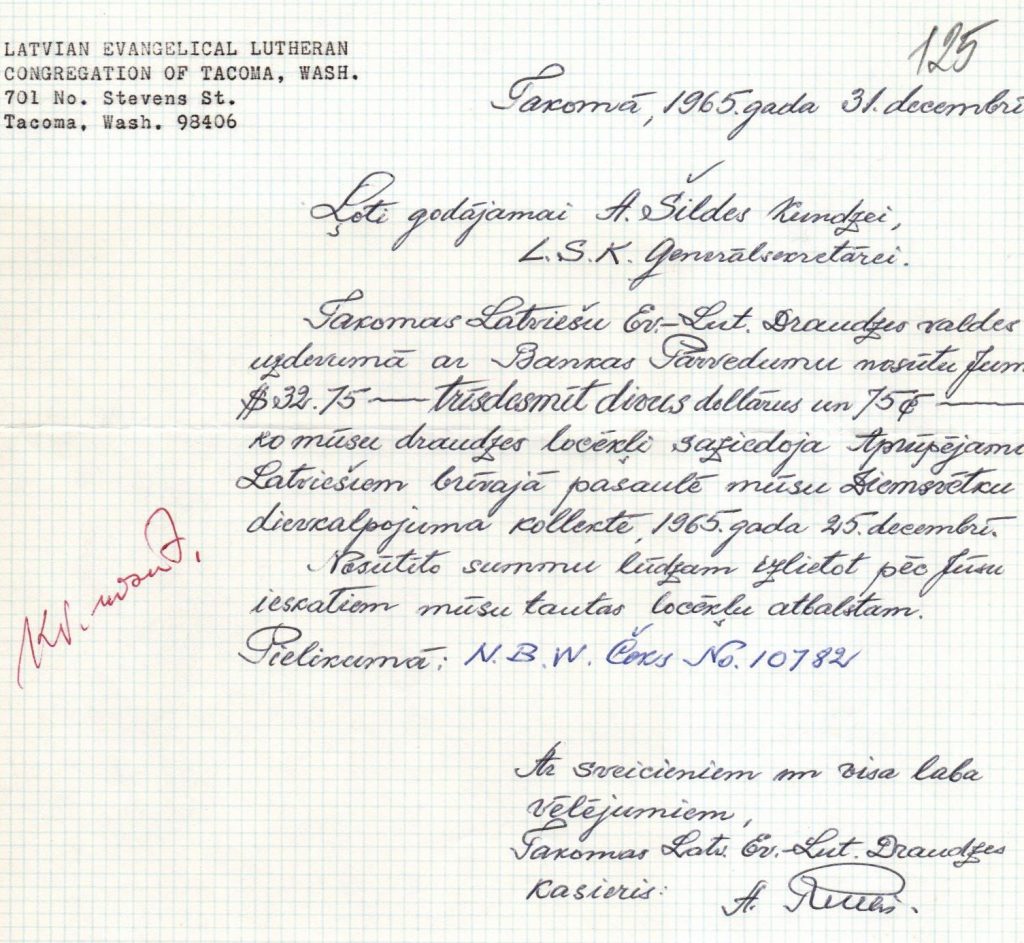 LATVIAN EVANGELICAL LUTHERAN
CONGREGATION OF TACOMA, WASH.
701 No. Stevens St.
Tacoma, Wash. 98406
125
Takomā, 1965.gada 31.decembrī
Ļoti godājamai A. Šildes Kundzei,
L.S.K. Ģenerālsekretārei.
Takomas Latviešu Ev.-Lut. Draudzes valdes
uzdevumā ar Bankas Pārvedumu nosūtu Jum
$32.75 — trīsdesmit divus dollārus un 75¢ —
ko mūsu draudzes locēkļi saziedoja Aprūpējami
Latviešiem brīvajā pasaulē mūsu Ziemsvētku
dievkalpojuma kollektē, 1965.gada 25.decembrī.
Nosūtīto summu lūdzam izlietot pēc Jūsu
ieskatiem mūsu tautas locēkļu atbalstam.
Pielikumā: N.B.W. Čeks No. 10782
Kv.
Ar sveicieniem un visa laba
vēlējumiem,
Takomas Latv. Ev.-Lut. Draudzes
Kasieris: A.